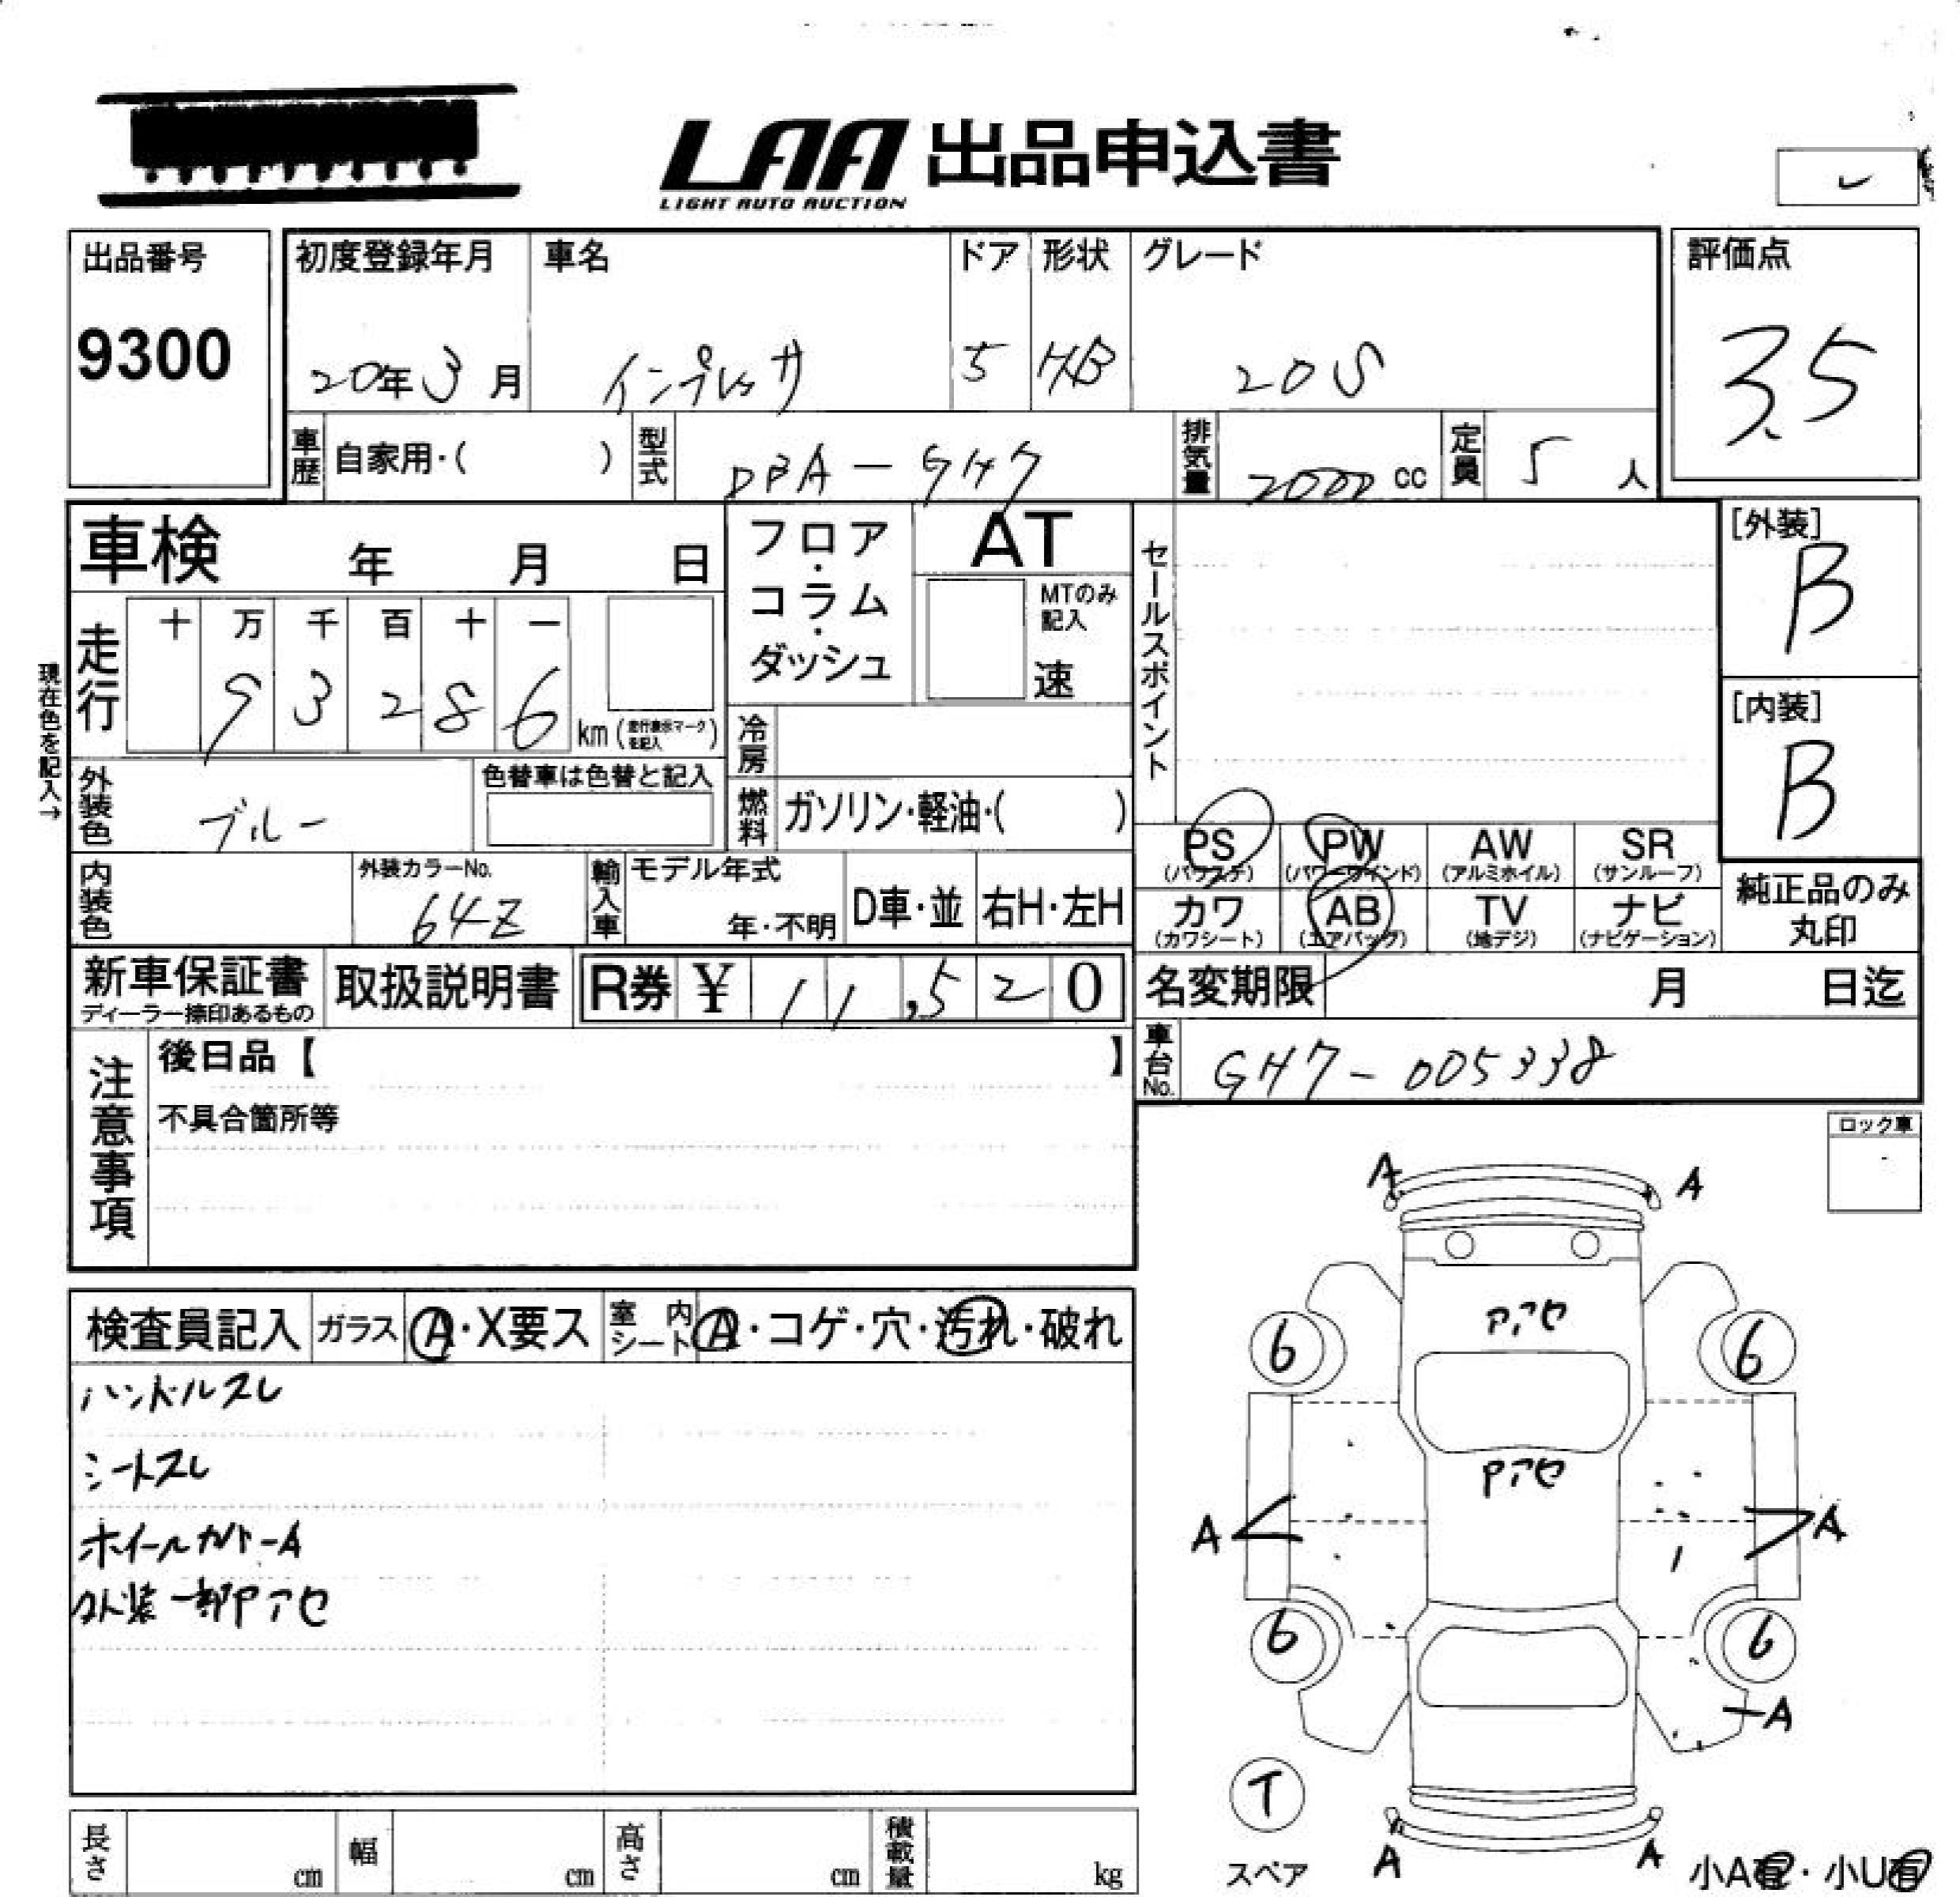 LAA 出品申込書
LIGHT AUTO AUCTION
出品番号
9300
初度登録年月
20年3月
車名
インプレッサ
ドア
5
形状
HB
グレード
20S
評価点
3.5
車歴
自家用・( )
型式
DBA-GH7
排気量
2000 cc
定員
5 人
車検 年 月 日
フロア・コラム・ダッシュ
AT
MTのみ記入
速
セールスポイント
[外装]
B
[内装]
B
現在色を記入→
走行
十 万 千 百 十 一
9 3 2 8 6 km (走行表示マークを記入)
冷房
燃料
ガソリン・軽油・( )
外装色
ブルー
色替車は色替と記入
内装色
外装カラーNo.
64Z
輸入車
モデル年式
年・不明
D車・並
右H・左H
PS
(パワステ)
PW
(パワーウインド)
AW
(アルミホイル)
SR
(サンルーフ)
カワ
(カワシート)
AB
(エアバッグ)
TV
(地デジ)
ナビ
(ナビゲーション)
純正品のみ
丸印
新車保証書
ディーラー捺印あるもの
取扱説明書
R券 ¥ 11,520
名変期限 月 日迄
車台No.
GH7-005338
注意事項
後日品【 】
不具合箇所等
ロック車
検査員記入
ガラス A・X要ス
室内シート A・コゲ・穴・汚れ・破れ
ハンドルスレ
シートスレ
ホイールカバーA
外装一部Pアセ
A A
Pアセ
6 6
Pアセ
A A
6 6
A
T
スペア
A A
小A有・小U有
長さ cm
幅 cm
高さ cm
積載量 kg